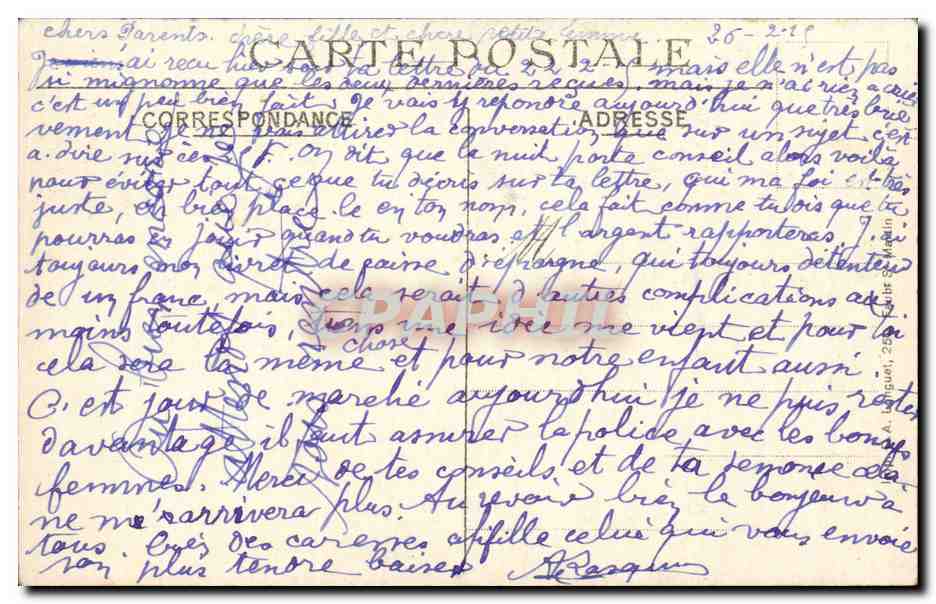 chers Parents. chère fille et chère petite femme 26-2-15
CARTE POSTALE
ai reçu hier soir ta lettre du 22 2 mais elle n'est pas
si mignonne que les deux dernières reçues. mais ja n'ai rien
c'est un peu bien fait. Je vais y répondre aujourd'hui que très briè
CORRESPONDANCE ADRESSE
vement je ne puis attirer la conversation que sur un sujet c'est
a dire sur ces F. On dit que la nuit porte conseil alors voilà
pour éviter tout ce que tu décris sur ta lettre, qui ma foi est très
juste, et bien place le en ton nom, cela fait comme tu dis que tu
pourras en jouir quand tu voudras et l'argent rapporteras. J'ai
toujours mon livret de caisse d'épargne, qui toujours détenteur
de un franc, mais cela serait d'autres complications au
moins toutefois, tiens une idée me vient et pour toi
cela sera la même chose et pour notre enfant aussi.
C'est jour de marché aujourd'hui je ne puis rester
davantage il faut assurer la police avec les bonnes
femmes. Merci de tes conseils et de ta semonce cela
ne m'sarrivera plus. Au revoir bien le bonjour à
tous. Gros des caresses a fille celui qui vous envoie
son plus tendre baiser
CPAPHIL
A. Languet, 25 Faub. St Martin